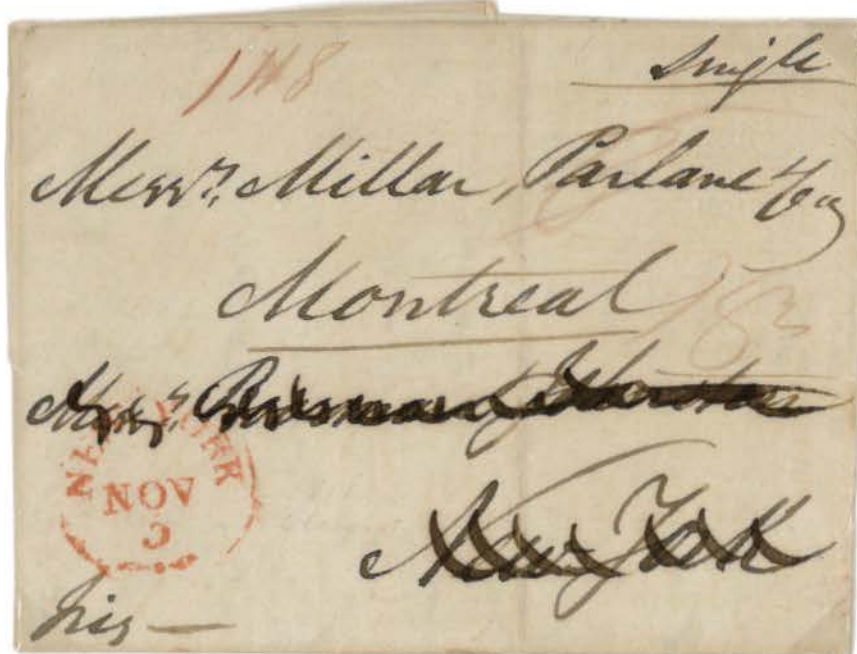 Single
Messrs. Millar, Parlane & Co
Montreal
Messrs.
NEW YORK
NOV
New York